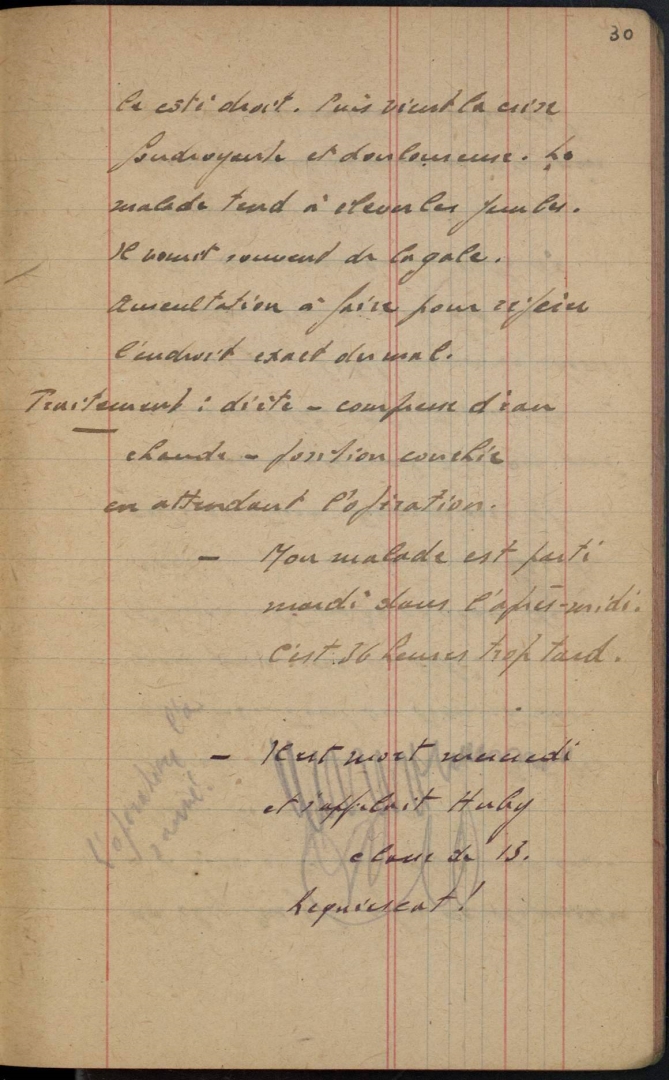 30
le côté droit. Puis vient la crise
foudroyante et douloureuse. Le
malade tend à élever les jambes.
Il vomit souvent de la gale.
Auscultation à faire pour
l'endroit exact du mal.
Traitement : diète - compresse d'eau
chaude - position couchée
en attendant l'opération.
- Mon malade est parti
mardi dans l'après-midi.
C'est 36 heures trop tard.
- Il est mort mercredi
et s'appelait Huby
classe de 13.
Requiescat !
L'opération l'a